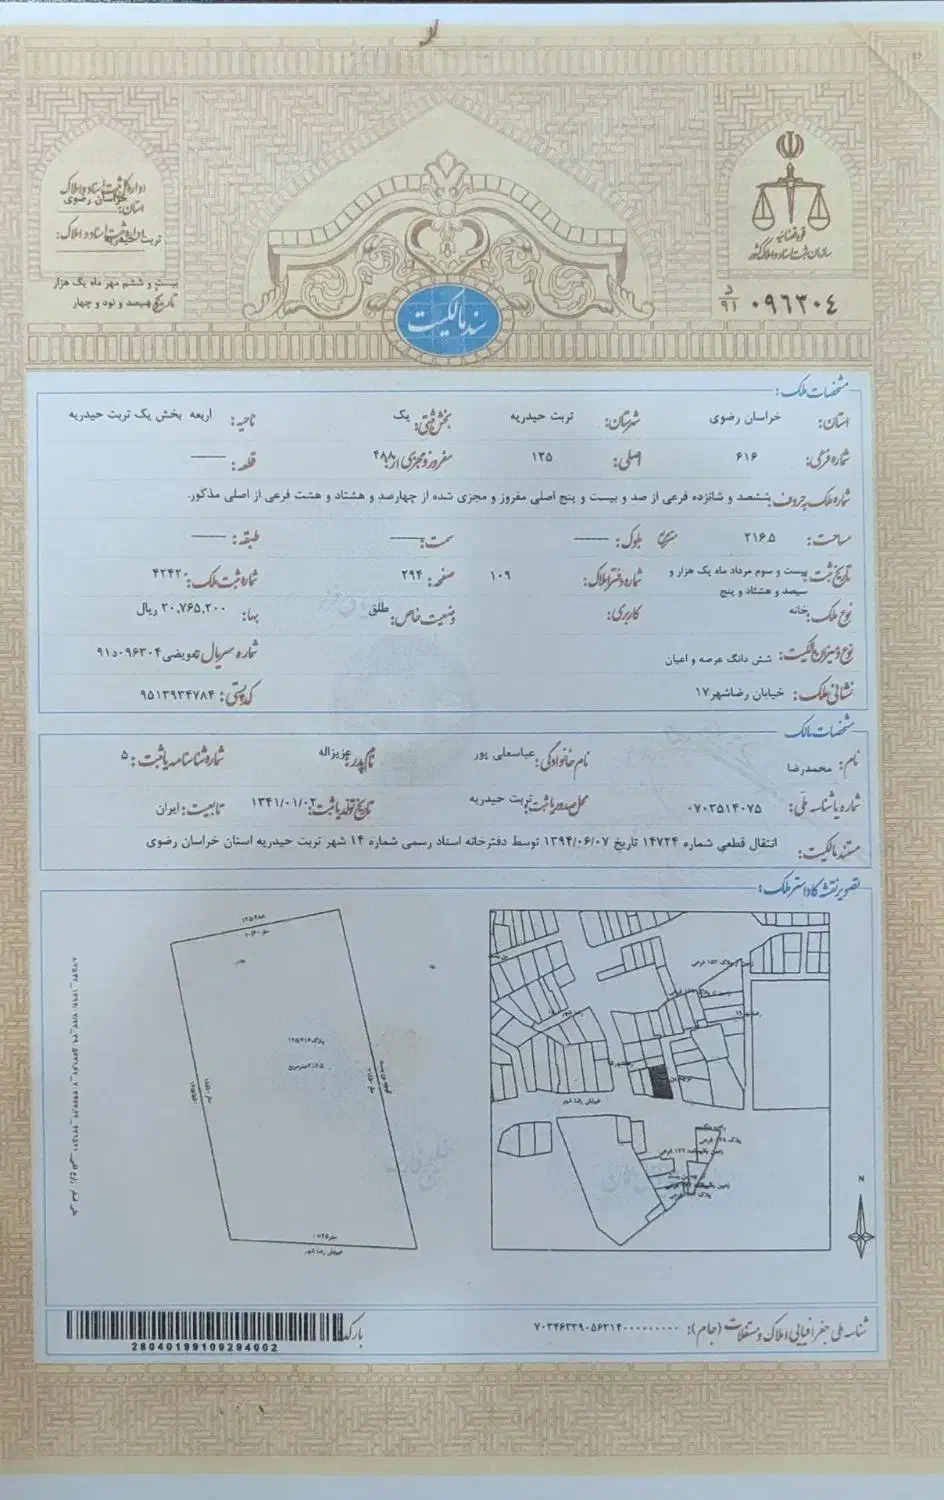 اداره کل ثبت اسناد و املاک
استان: خراسان رضوی
اداره ثبت اسناد و املاک: تربت حیدریه
بیست و ششم مهر ماه یک هزار
تاریخ: سیصد و نود و چهار
قوه قضائیه
سازمان ثبت اسناد و املاک کشور
۰۹۶۳۰۴ د ۹۱
سند مالکیت
مشخصات ملک:
استان: خراسان رضوی شهرستان: تربت حیدریه بخش ثبتی: یک ناحیه: اربعه بخش یک تربت حیدریه
شماره فرعی: ۶۱۶ اصلی: ۱۲۵ مفروز و مجزی از: ۴۸۸ قطعه: ——
شماره ملک به حروف: ششصد و شانزده فرعی از صد و بیست و پنج اصلی مفروز و مجزی شده از چهارصد و هشتاد و هشت فرعی از اصلی مذکور.
مساحت: ۲۱۶.۵ متر مربع بلوک: —— سمت: —— طبقه: ——
تاریخ ثبت: بیست و سوم مرداد ماه یک هزار و سیصد و هشتاد و پنج شماره دفتر املاک: ۱۰۹ صفحه: ۲۹۴ شماره ثبت ملک: ۴۲۴۲۰
نوع ملک: خانه کاربری: وضعیت خاص: طلق بها: ۲۰,۷۶۵,۲۰۰ ریال
نوع و میزان مالکیت: شش دانگ عرصه و اعیان شماره سریال تعویضی: ۰۹۶۳۰۴د۹۱
نشانی ملک: خیابان رضاشهر۱۷ کد پستی: ۹۵۱۳۹۳۴۷۸۴
مشخصات مالک
نام: محمدرضا نام خانوادگی: عباسعلی پور نام پدر: عزیزاله شماره شناسنامه یا ثبت: ۵
شماره یا شناسه ملی: ۰۷۰۳۵۱۴۰۷۵ محل صدور یا ثبت: تربت حیدریه تاریخ تولد یا ثبت: ۱۳۴۱/۰۱/۰۲ تابعیت: ایران
مستند مالکیت: انتقال قطعی شماره ۱۴۷۲۴ تاریخ ۱۳۹۴/۰۶/۰۷ توسط دفترخانه اسناد رسمی شماره ۱۴ شهر تربت حیدریه استان خراسان رضوی
تصویر نقشه کاداستر ملک:
پلاک ۱۲۵/۶۱۶
خیابان رضا شهر
خیابان رضا شهر
N
شناسه ملی جغرافیایی املاک و مستغلات (جام): ۷۰۳۴۶۳۳۹۰۵۶۳۱۴۰۰۰۰۰۰۰۰۰
بارکد
28040199109294002